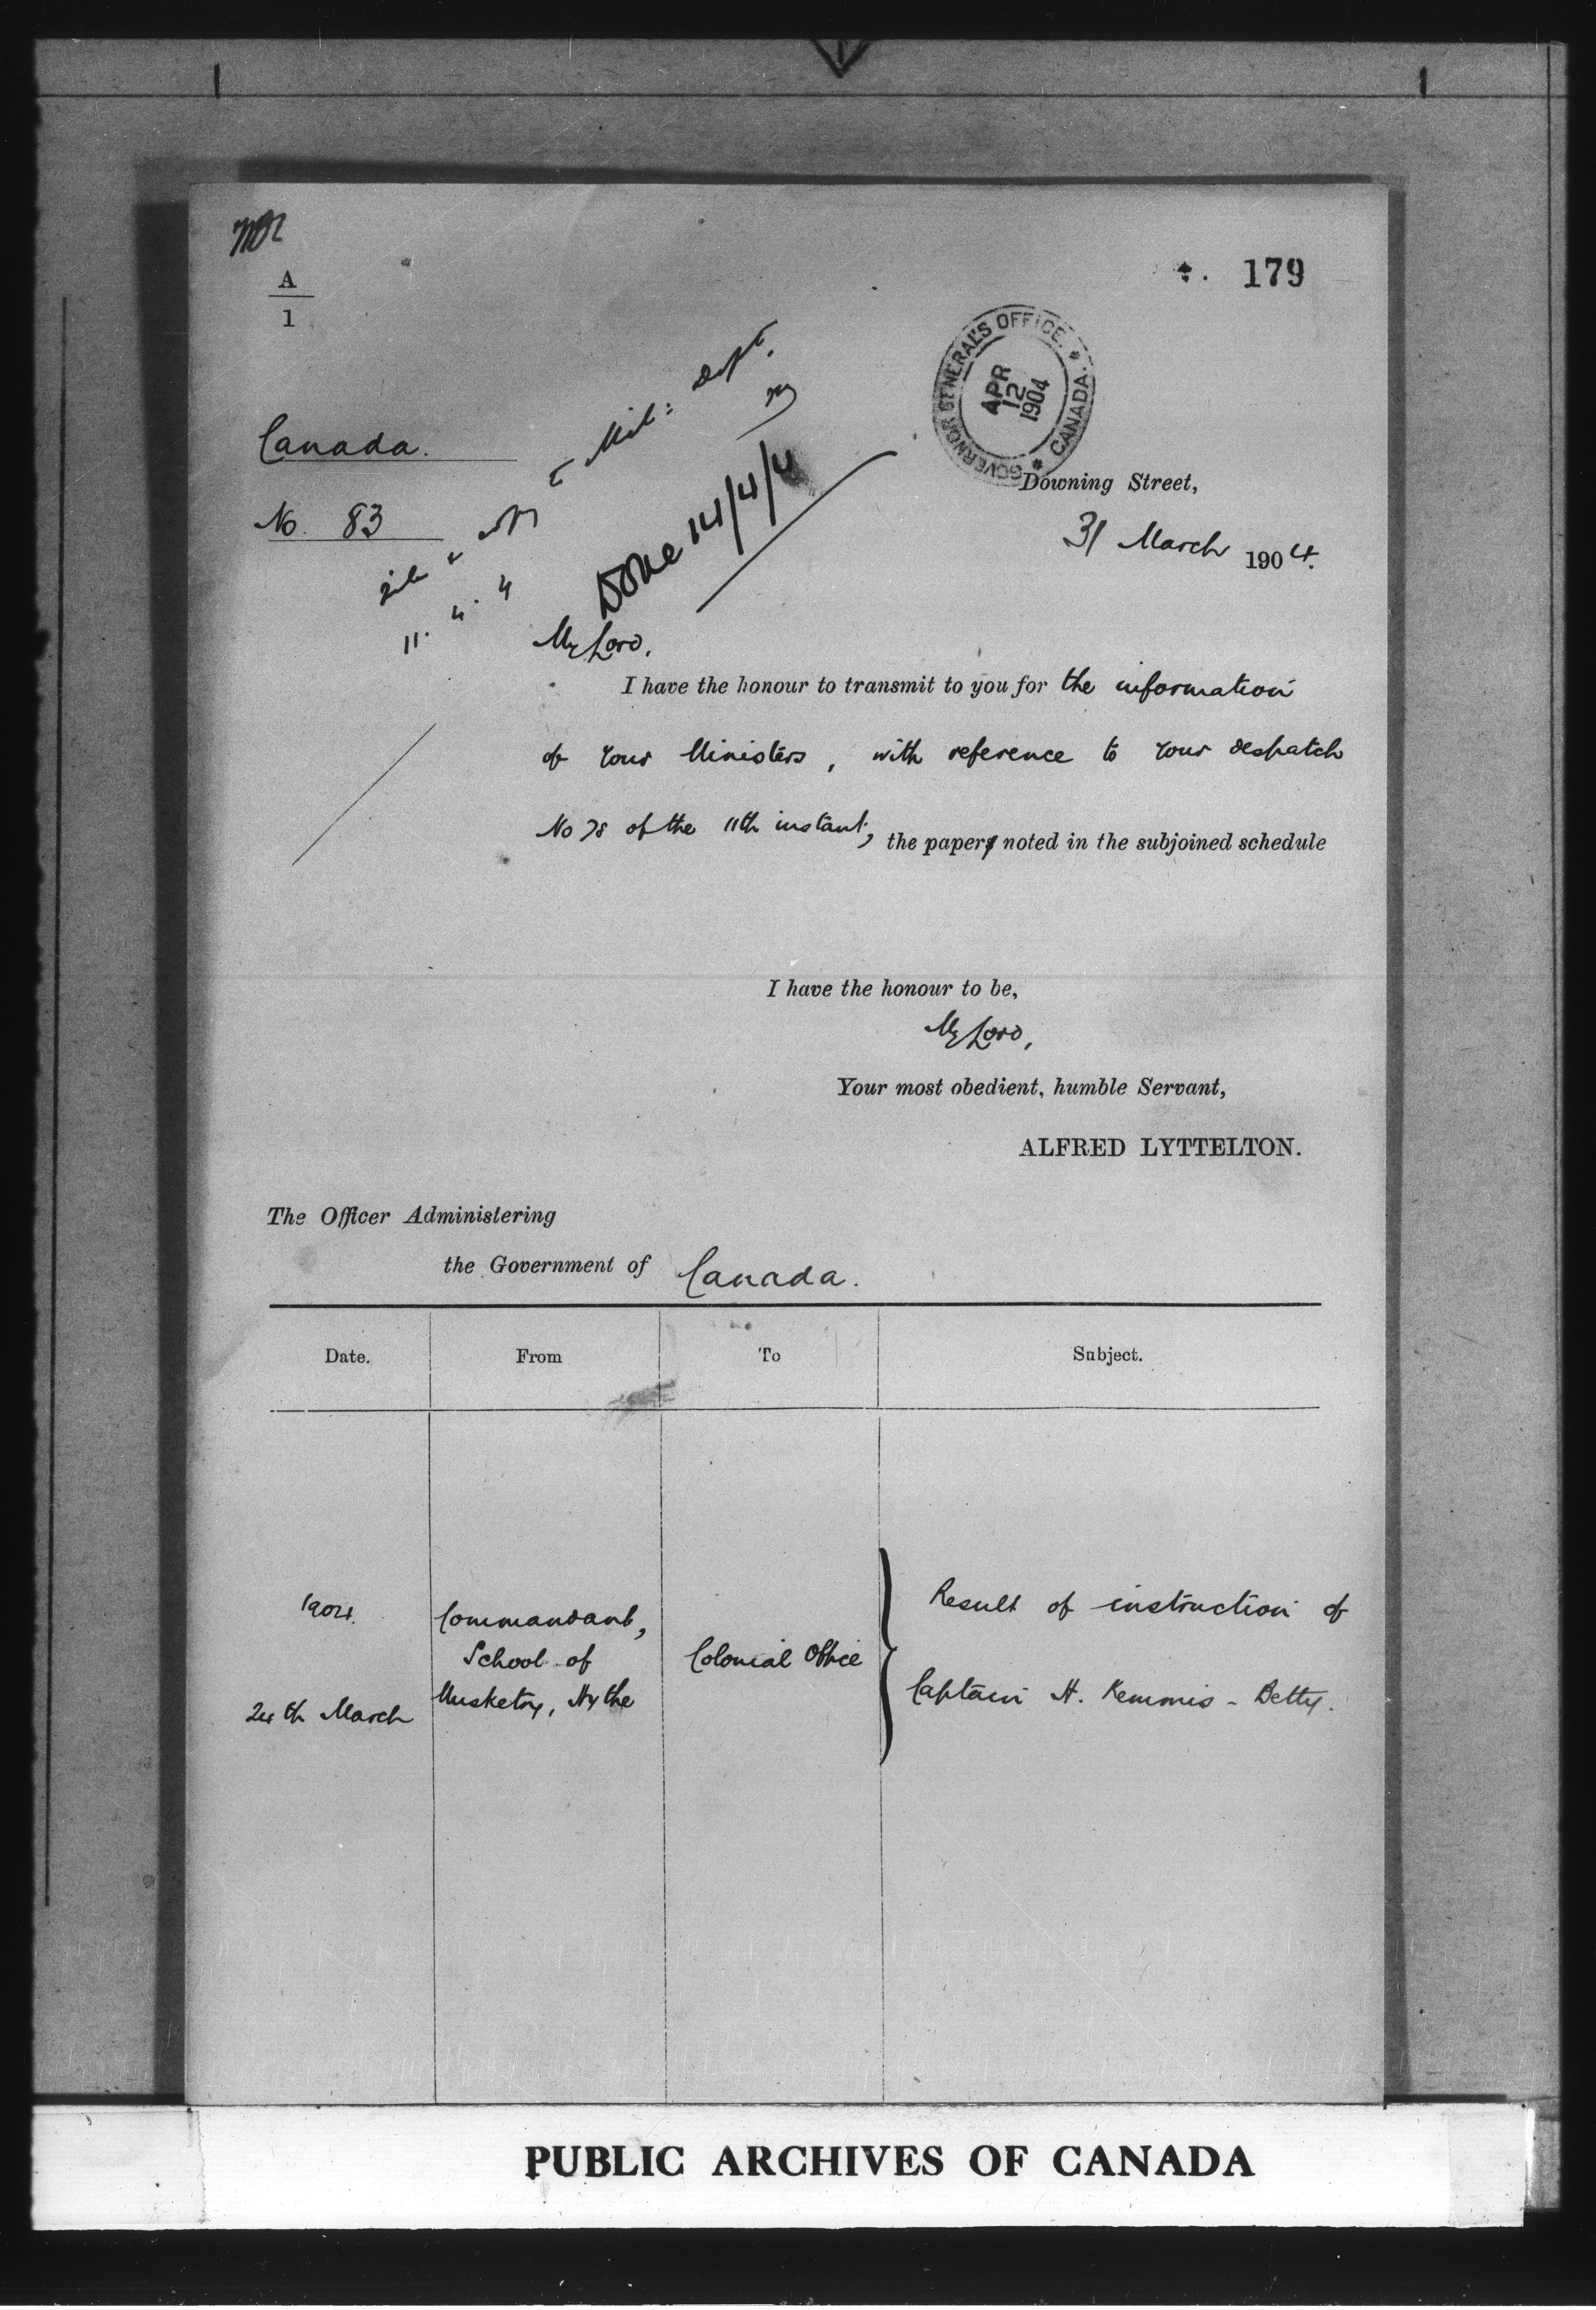 A
1
179
GOVERNOR GENERAL'S OFFICE. * CANADA. *
APR
12
1904
Canada.
No. 83
copy to Mil: Dept.
11. 4. 4
Done 14/4/4
Downing Street,
31 March 1904.
My Lord,
I have the honour to transmit to you for the information
of your Ministers, with reference to your despatch
No 78 of the 11th instant, the paper noted in the subjoined schedule
I have the honour to be,
My Lord,
Your most obedient, humble Servant,
ALFRED LYTTELTON.
The Officer Administering
the Government of Canada.
Date. From To Subject.
1904. Commandant, Result of instruction of
School of Colonial Office
24th March Musketry, Hythe Captain H. Kemmis-Betty.
PUBLIC ARCHIVES OF CANADA